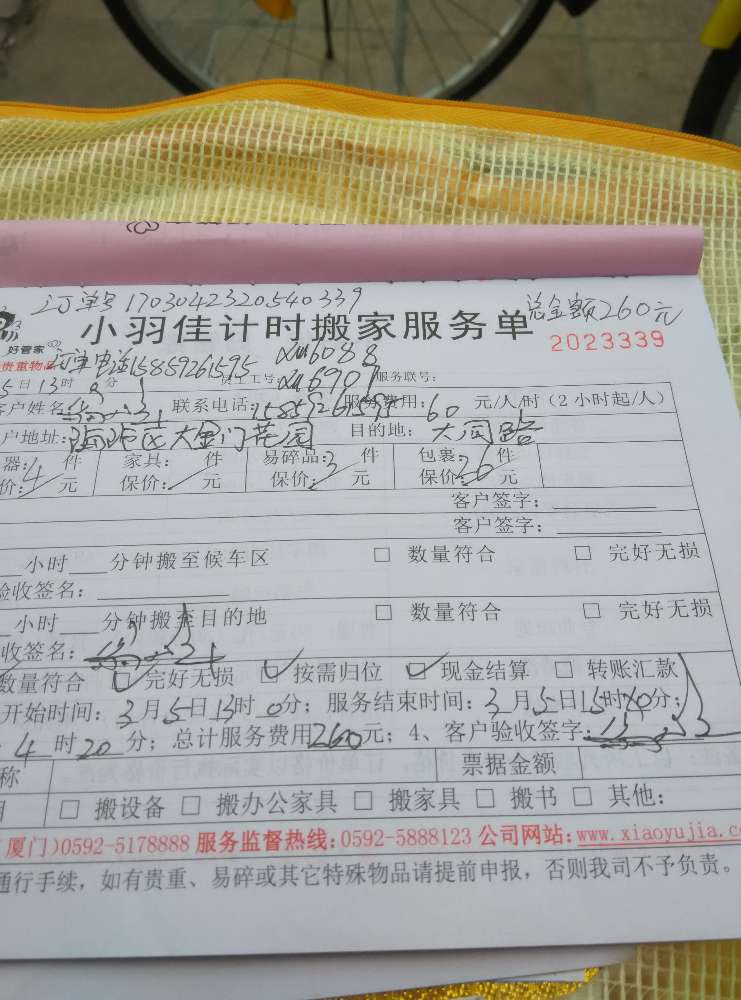 订单号 1703042320540339 总金额260元
小羽佳计时搬家服务单
好管家
2023339
贵重物品 订单电话15859261595 xm6088
5日13时 分 员工工号: xm6901 服务联号:
客户姓名: 联系电话:15859261595 服务费用:60 元/人/时(2小时起/人)
户地址: 海沧区大金门花园 目的地: 大同路
器:4 件 家具: 件 易碎品:3 件 包裹:26 件
价: 元 保价: 元 保价: 元 保价: 元
客户签字:
客户签字:
小时 分钟搬至候车区 □ 数量符合 □ 完好无损
验收签名:
小时 分钟搬至目的地 □ 数量符合 □ 完好无损
收签名:
数量符合 ☑ 完好无损 ☑ 按需归位 ☑ 现金结算 □ 转账汇款
开始时间:3月5日13时0分;服务结束时间:3月5日15时10分;
4时20分;总计服务费用260元;4、客户验收签字:
称 票据金额
目 □ 搬设备 □ 搬办公家具 □ 搬家具 □ 搬书 □ 其他:
(厦门)0592-5178888 服务监督热线:0592-5888123 公司网站:www.xiaoyujia.c
通行手续,如有贵重、易碎或其它特殊物品请提前申报,否则我司不予负责。